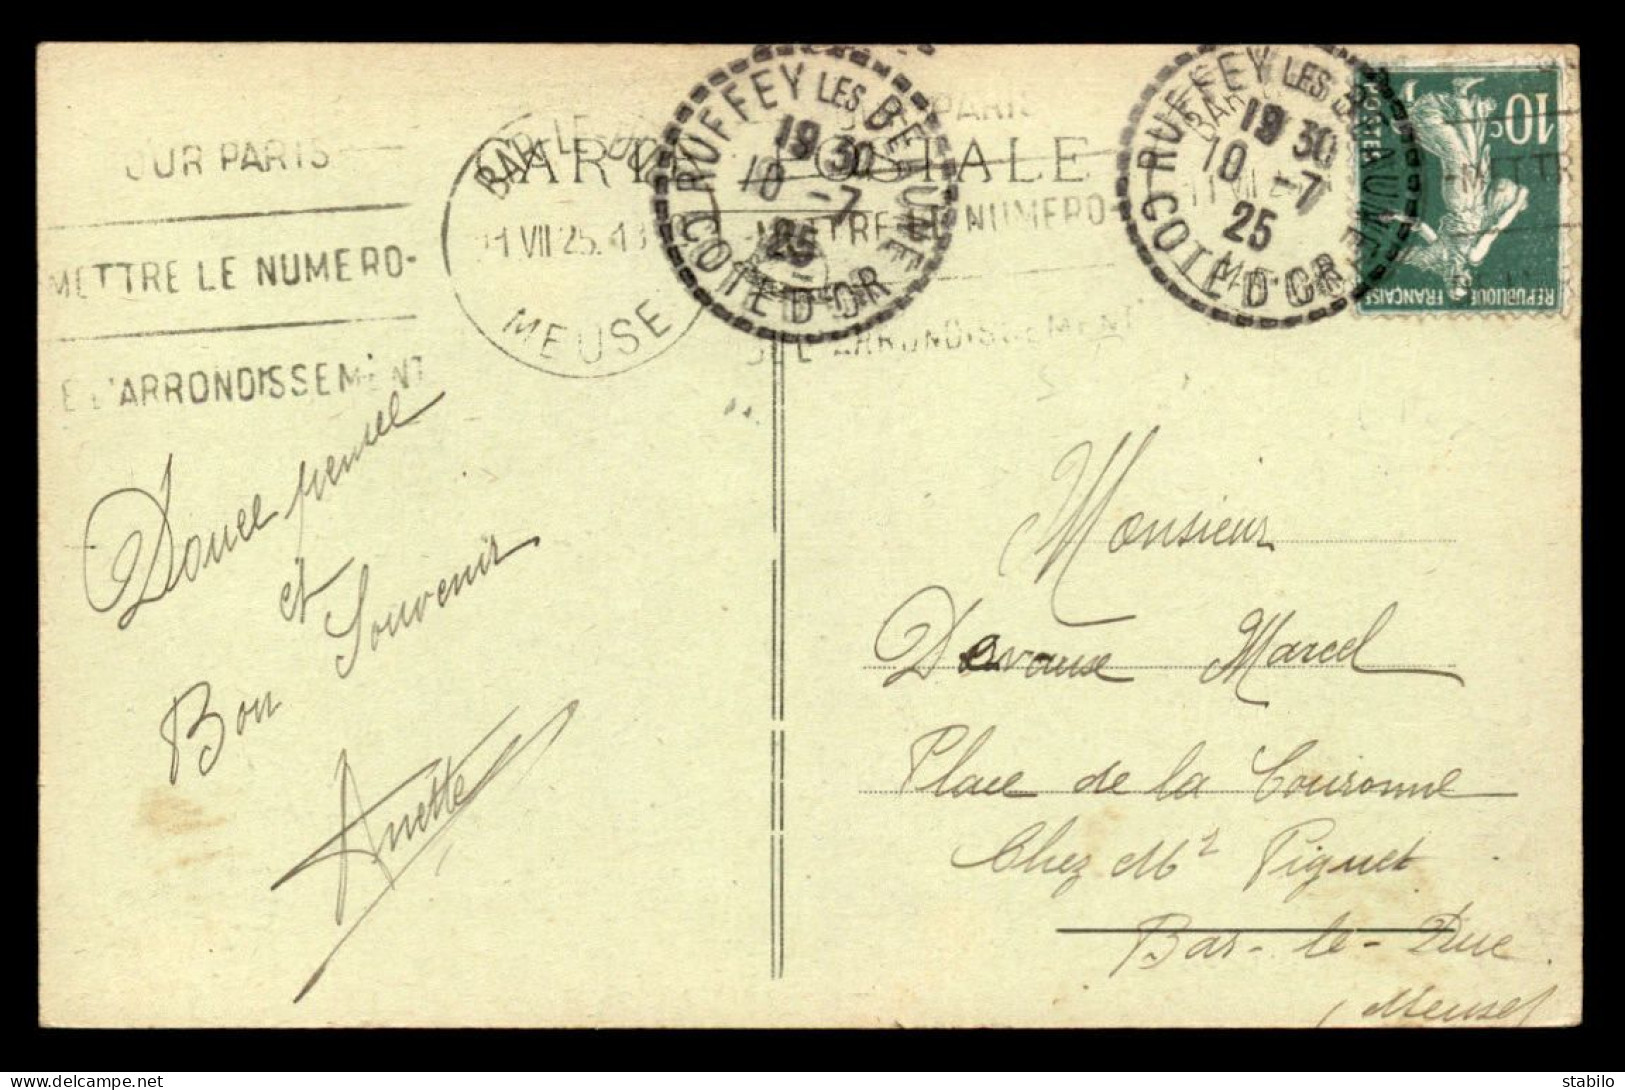 CARTE POSTALE
POUR PARIS
METTRE LE NUMERO-
DE L'ARRONDISSEMENT
BAR-LE-DUC
11 VII 25
MEUSE
RUFFEY LES BEAUNE
19 30
10 -7
25
COTE D'OR
PARIS
METTRE LE NUMERO-
DE L'ARRONDISSEMENT
RUFFEY LES BEAUNE
19 30
10 -7
25
COTE D'OR
POSTES
10c
REPUBLIQUE FRANÇAISE
Douce pensée
et
Bon Souvenir
Anette
Monsieur
Marcel
Place de la Couronne
Chez Mr Piguet
Bar-le-Duc
(Meuse)